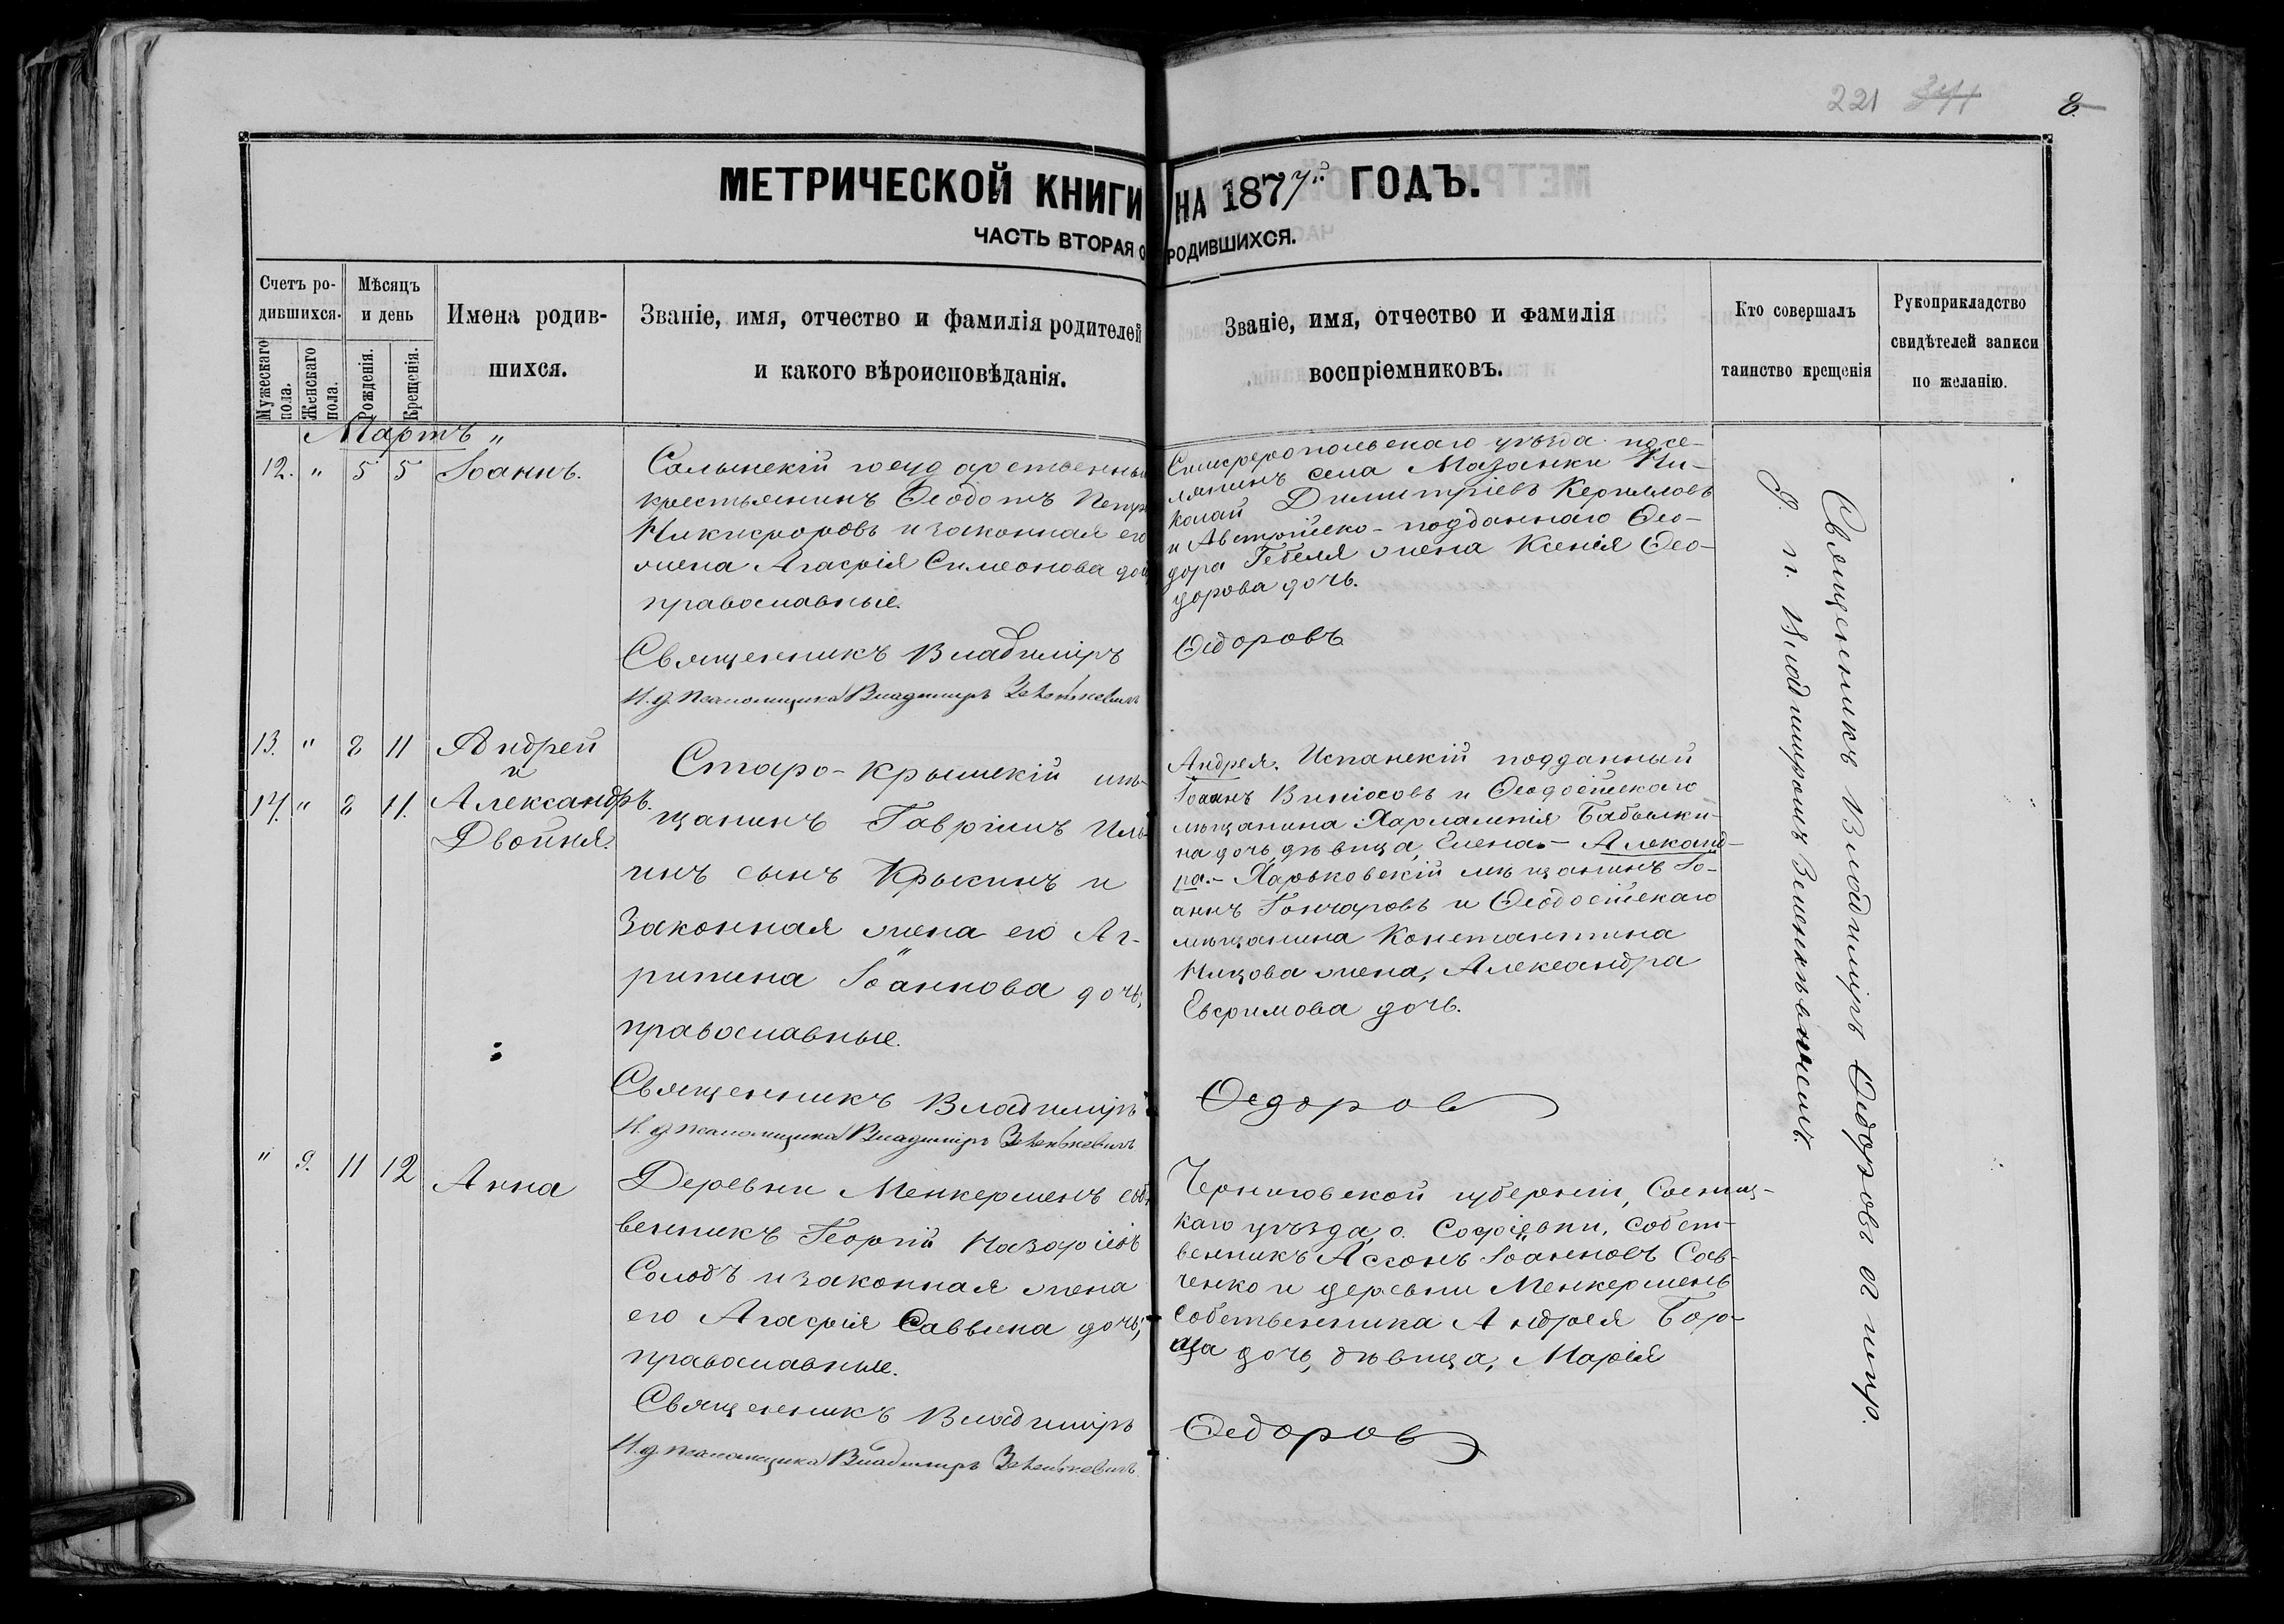 221 341 8
МЕТРИЧЕСКОЙ КНИГИ НА 1877й ГОДЪ.
ЧАСТЬ ВТОРАЯ О РОДИВШИХСЯ.
Счетъ ро-
дившихся.
Мужескаго
пола.
Женскаго
пола.
Мѣсяцъ
и день
Рожденія.
Крещенія.
Имена родив-
шихся.
Званіе, имя, отчество и фамилія родителей
и какого вѣроисповѣданія.
Званіе, имя, отчество и фамилія
воспріемниковъ.
Кто совершалъ
таинство крещенія
Рукоприкладство
свидѣтелей записи
по желанію.
Мартъ „
12. „ 5 5 Іоаннъ.
государственный
крестьянинъ Ѳеодотъ Петр
Никифоровъ и законная его
жена Агафія Симеонова доч
православные.
Священникъ Владиміръ
И. д. псаломщика Владиміръ Зеленкевичъ
Симферопольскаго уѣзда посе-
лянинъ села Мазанки Ни-
колай Димитріевъ Керилловъ
и Австрійско-подданнаго Ѳео-
дора Гебеля жена Ксенія Ѳео-
дорова дочь.
Ѳедоровъ
13. „ 8 11 Андрей
и
14. „ 8 11. Александръ.
Двойня.
Старо-Крымскій мѣ-
щанинъ Гавріилъ Иль-
инъ сынъ Крысинъ и
законная жена его Аг-
рипина Іоаннова дочь,
православные.
Священникъ Владиміръ
И. д. псаломщика Владиміръ Зеленкевичъ
Андрея. Испанскій подданный
Іоаннъ и Ѳеодосійскаго
мѣщанина Харлампія Бабылки-
на дочь, дѣвица, Елена. – Александ-
ра. – Харьковскій мѣщанинъ Іо-
аннъ Гончаровъ и Ѳеодосійскаго
мѣщанина Константина
Ницова жена, Александра
Евфимова дочь.
Ѳедоров
„ 9. 11 12 Анна
Деревни Менкерменъ собст
венникъ Георгій Назаріевъ
Солодъ и законная жена
его Агафія Саввина дочь,
православные.
Священникъ Владиміръ
И. д. псаломщика Владиміръ Зеленкевичъ
Черниговской губерніи, Сосниц-
каго уѣзда, д. Софіевки, собст-
венникъ Ассонъ Іоанновъ Сав-
ченко и деревни Менкермень
собственника Андрея Бор-
ща дочь, дѣвица, Марія
Ѳедоров
Священникъ Владиміръ Ѳедоровъ съ
Владиміромъ Зеленкевичемъ.